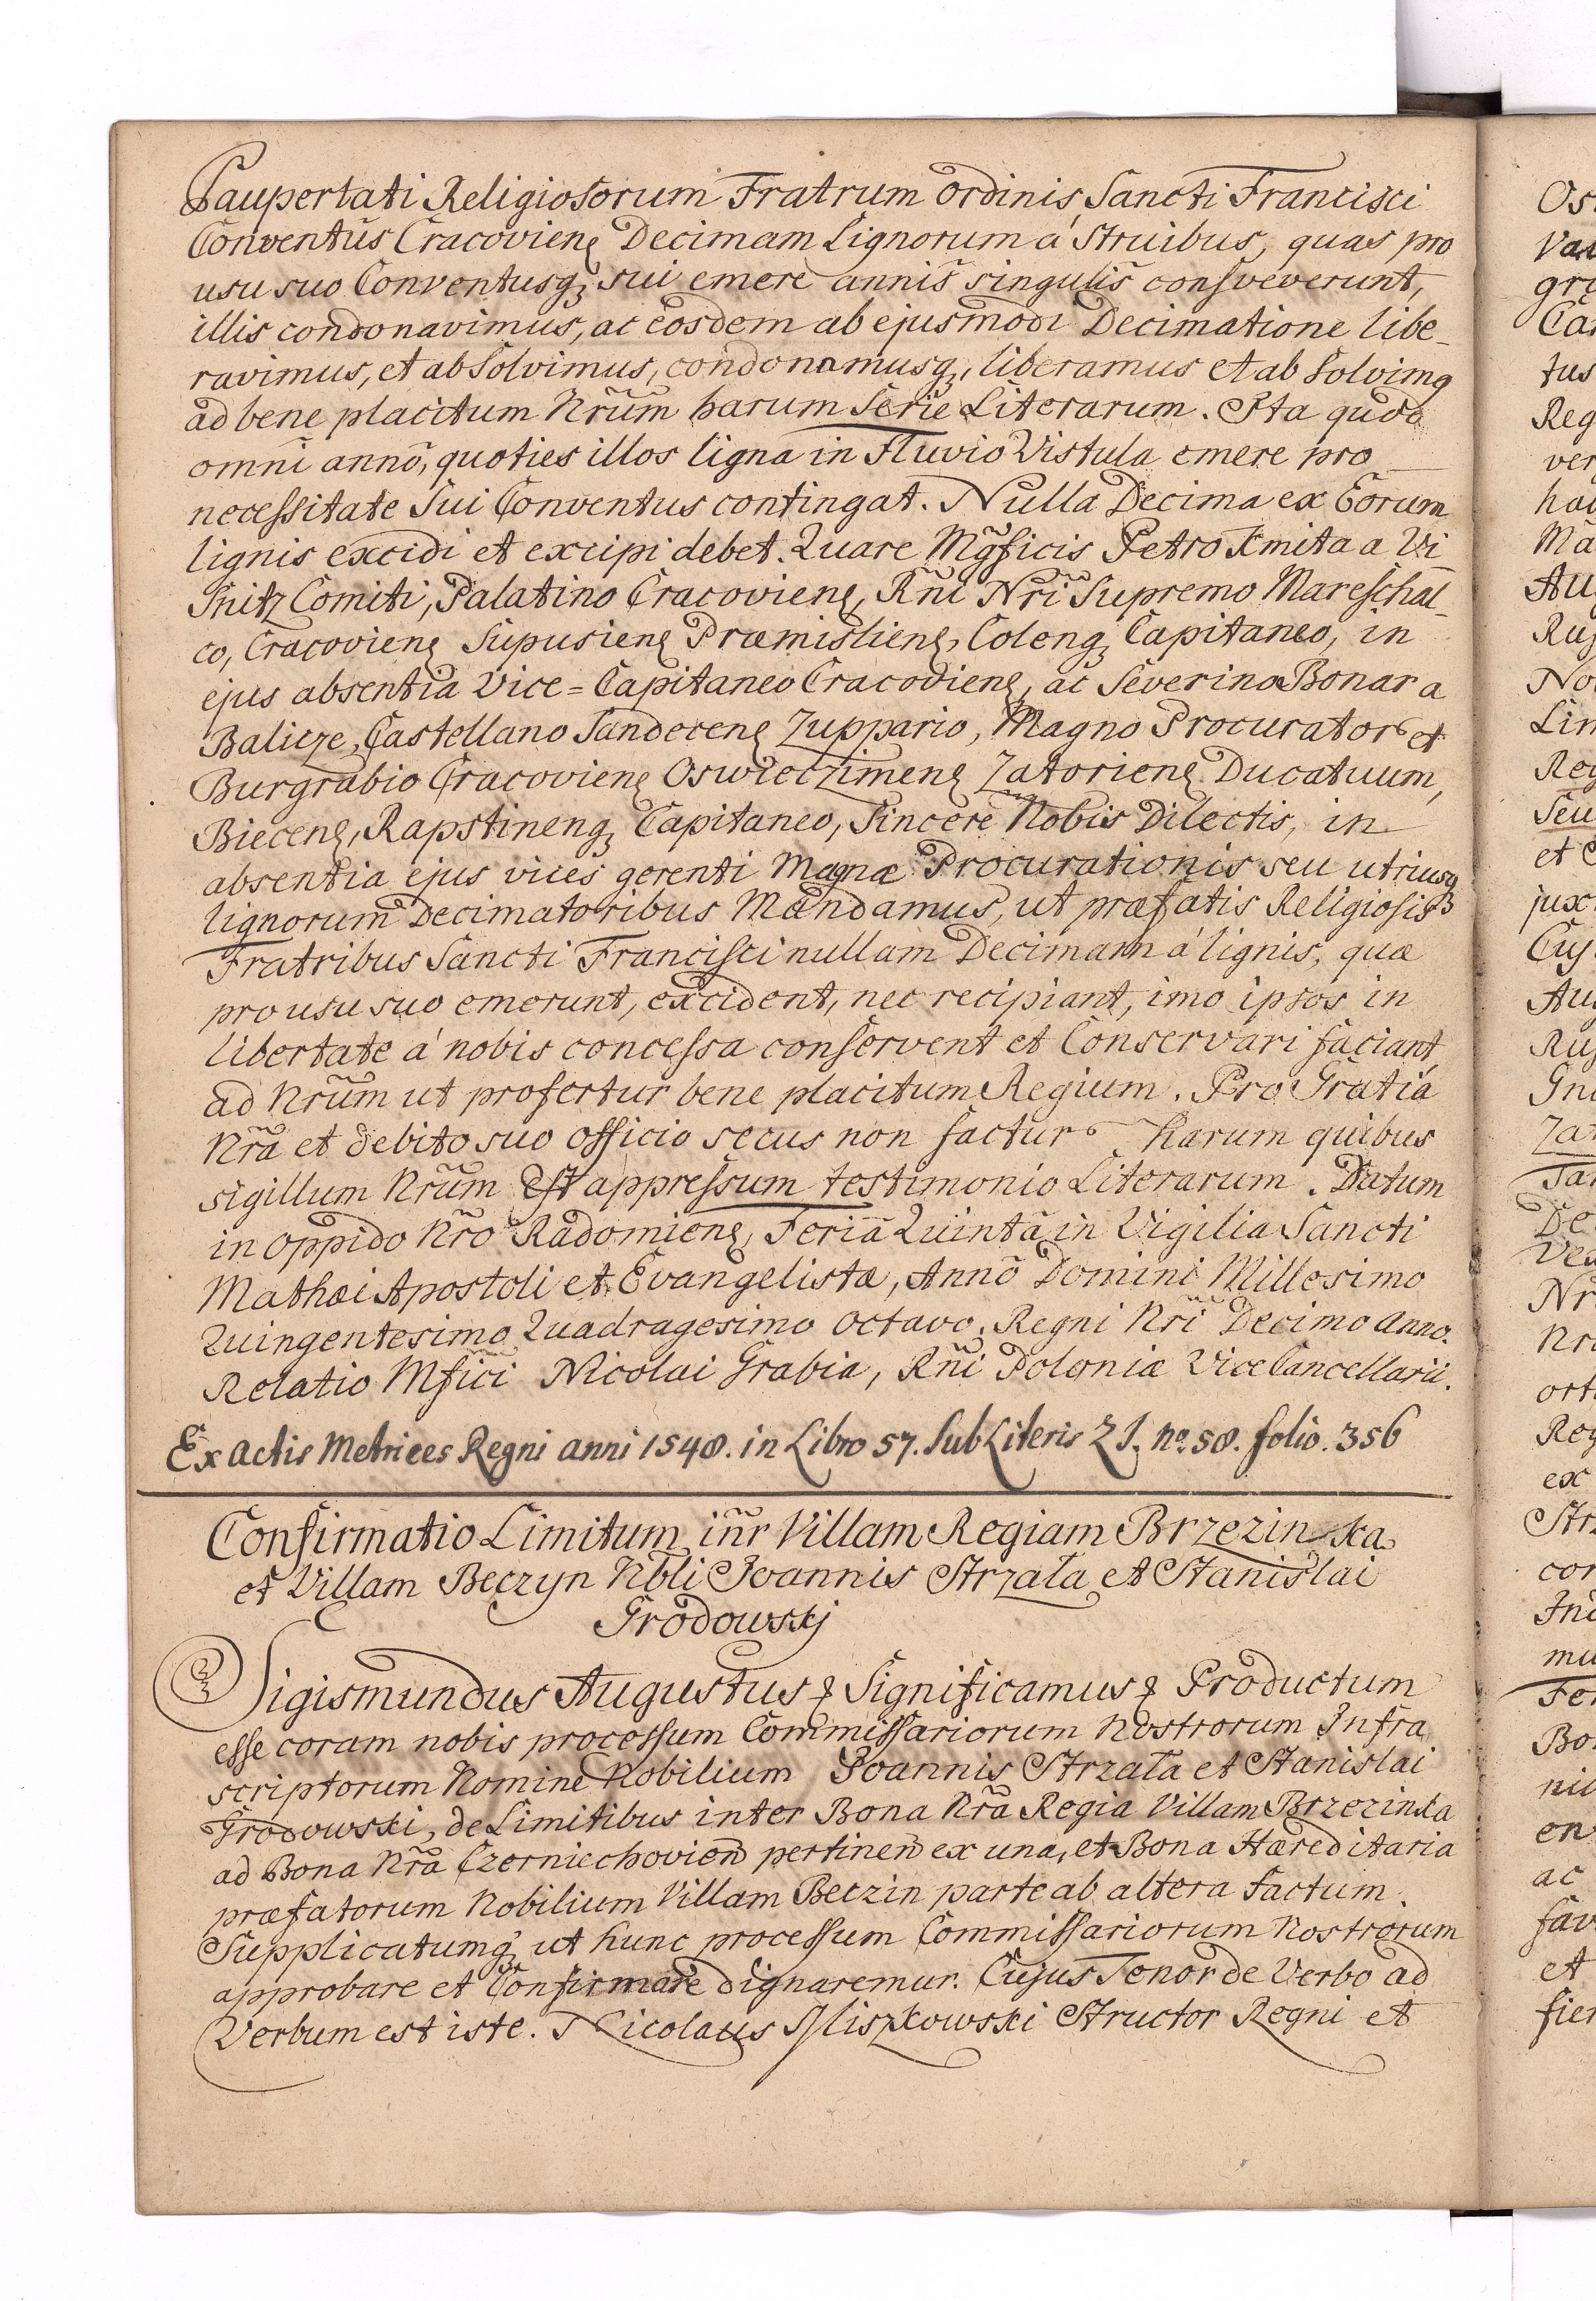 Paupertati Religiosorum Fratrum Ordinis Sancti Francisci
Conventûs Cracovien Decimam Lignorum á Struibus, quas pro
usu suo Conventusq; sui emere annis singulis consveverunt,
illis condonavimus, ac eosdem ab ejusmodi Decimatione libe_
ravimus, et absolvimus, condonamusq;, liberamus et absolvimq
ad bene placitum Nrũm harum Serie Literarum. Ita quod
omni annõ, quoties illos ligna in Fluvio Vistula emere pro
necessitate Sui Conventus contingat. Nulla Decima ex Eorum
lignis excidi et excipi debet. Quare Mgficis Petro Kmita a Vi
Snitz Comiti, Palatino Cracovien, Rñi Nrĩ Supremo Mareschal_
co, Cracovien Sipusien Præmislien, Coleng Capitaneo, in
ejus absentia Vice=Capitaneo Cracovien, ac Severino Bonar a
Balicze, Castellano Sandecen Zuppario, Magno Procurator et
Burgrabio Cracovien Oswieczimen Zatorien Ducatuum,
Biecen, Rapstineng Capitaneo, Sincere Nobis Dilectis, in
absentia ejus vices gerenti Magnæ Procurationis seu utriusq;
lignorum Decimatoribus Mandamus, ut præfatis Religiosis
Fratribus Sancti Francisci nullam Decimam á lignis, quæ
pro usu suo emerunt, excident, nec recipiant, imo ipsos in
libertate á nobis concessa conservent et Conservari faciant,
ad Nrũm ut profertur bene placitum Regium. Pro Gratiá
Nrã et debito suo officio secus non factur harum quibus
sigillum Nrũm Est appressum testimonio Literarum. Datum
in Oppido Nrõ Radomien, Feriâ Quintâ in Vigilia Sancti
Mathæi Apostoli et Evangelistæ, Annõ Domini Millesimo
Quingentesimo Quadragesimo Octavo, Regni Nri Decimo anno.
Relatio Mfici Nicolai Grabia, Rñi Poloniæ ViceCancellarii.
Ex Actis Metrices Regni anni 1548. in Libro 57. Sub Literis ZJ. No. 58. folio. 356
Confirmatio Limitum iñr Villam Regiam Brzezinka
et Villam Beczyn Nbli Joannis Strzała et Stanislai
Grodowskj
Sigismundus Augustus & Significamus & Productum
esse coram nobis processum Commissariorum Nostrorum Infra
scriptorum Nomine Nobilium Joannis Strzała et Stanislai
Grodowski, de Limitibus inter Bona Nrã Regia Villam Brzezinka
ad Bona Nrã Czerniechovien pertinen ex una, et Bona Hæreditaria
præfatorum Nobilium Villam Beczin parte ab altera factum.
Supplicatumq; ut hunc processum Commissariorum Nostrorum
approbare et Confirmare dignaremur. Cujus Tenor de Verbo ad
Verbum est iste. Nicolaus Miszkowski Structor Regni et